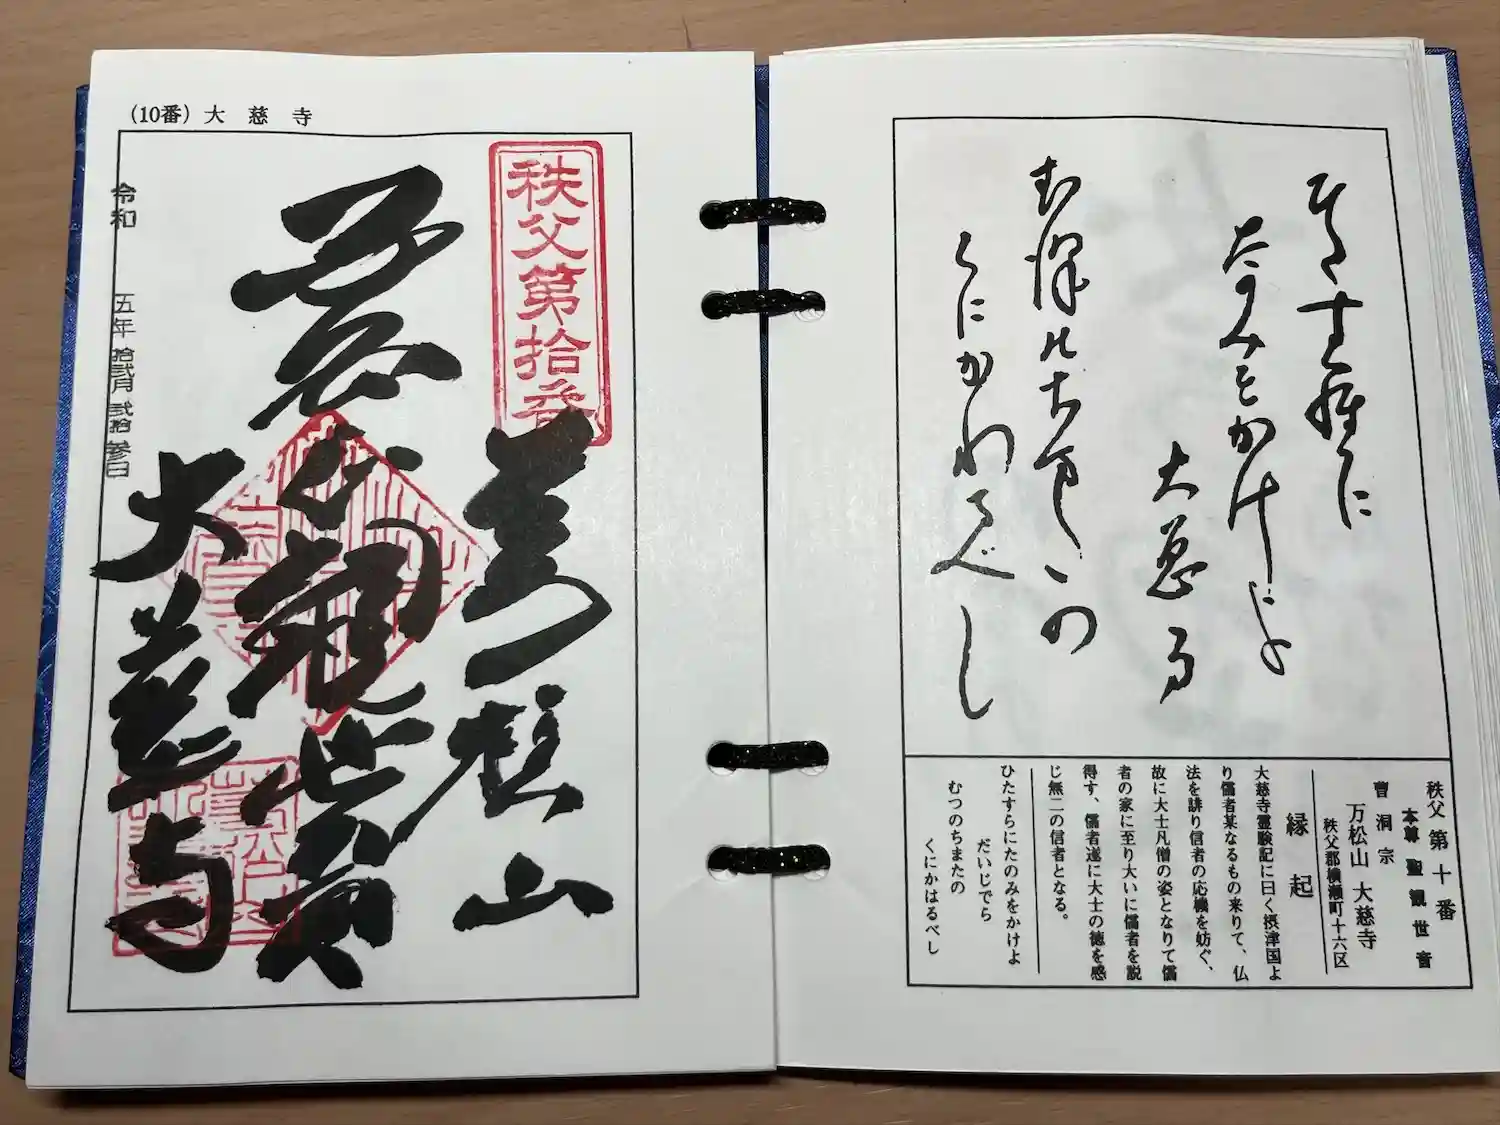 (10番) 大慈寺
秩父第拾番
万松山
大慈寺
令和 五年 拾弐月 弐拾参日
ひたす羅に
たのみをかけよ
大慈寺
むつ
くにかわるべし
秩父第十番
本尊 聖観世音
曹洞宗
万松山 大慈寺
秩父郡横瀬町十六区
縁起
大慈寺霊験記に曰く摂津国よ
り儒者某なるもの来りて、仏
法を誹り信者の応機を妨ぐ、
故に大士凡僧の姿となりて儒
者の家に至り大いに儒者を説
得す、儒者遂に大士の徳を感
じ無二の信者となる。
ひたすらにたのみをかけよ
だいじでら
むつのちまたの
くにかはるべし